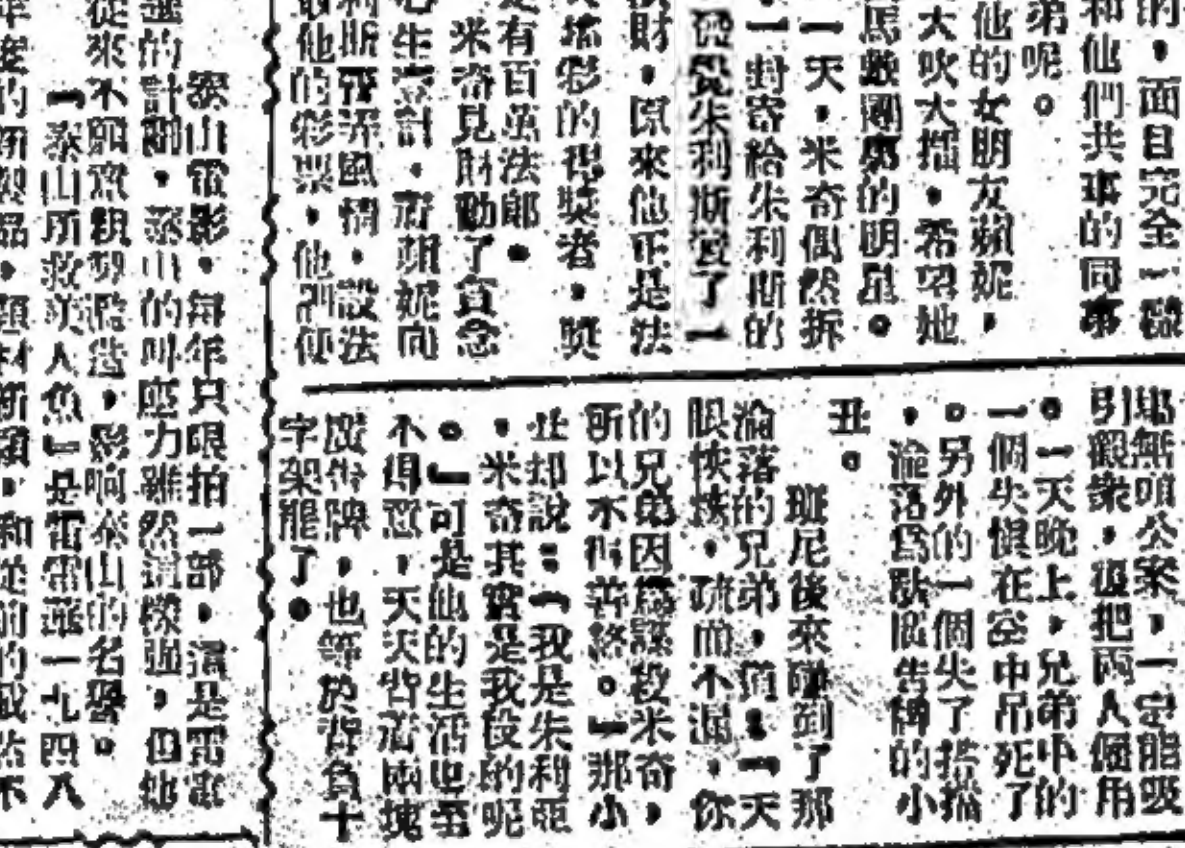 的,面目完全一樣
和他們共事的同事
弟呢。
他的女朋友蘋妮,
大吹大擂,希望她
馬戲團裏的明星。
一天,米奇偶然拆
一封寄給朱利斯的
發覺朱利斯買了一
財,原來他正是法
彩的得獎者,獎
有百萬法郎。
米奇見財動了貪念
生計,着蘋妮向
利斯賣弄風情,設法
他的彩票,他們便
那無頭公案,一定能吸
引觀衆,還把兩人個用
。一天晚上,兄弟中的
一個失慎在空中吊死了
。另外的一個失了搭擋
,淪落爲貼廣告牌的小
丑。
班尼後來碰到了那
淪落的兄弟,道:「天
眼恢恢,疏而不漏,你
的兄弟因爲謀殺米奇,
所以不得善終。」那小
丑却說:「我是朱利亞
,米奇其實是我殺的呢
。」可是他的生活也弄
不得意,天天背着兩塊
廣告牌,也等於背負十
字架罷了。
泰山電影,每年只限拍一部,這是雷電
的計劃,泰山的叫座力雖然這樣强,但他
從來不願意粗製濫造,影响泰山的名聲。
「泰山所救美人魚」是雷電華一九四八
年度的新製品,題材新穎,和從前的